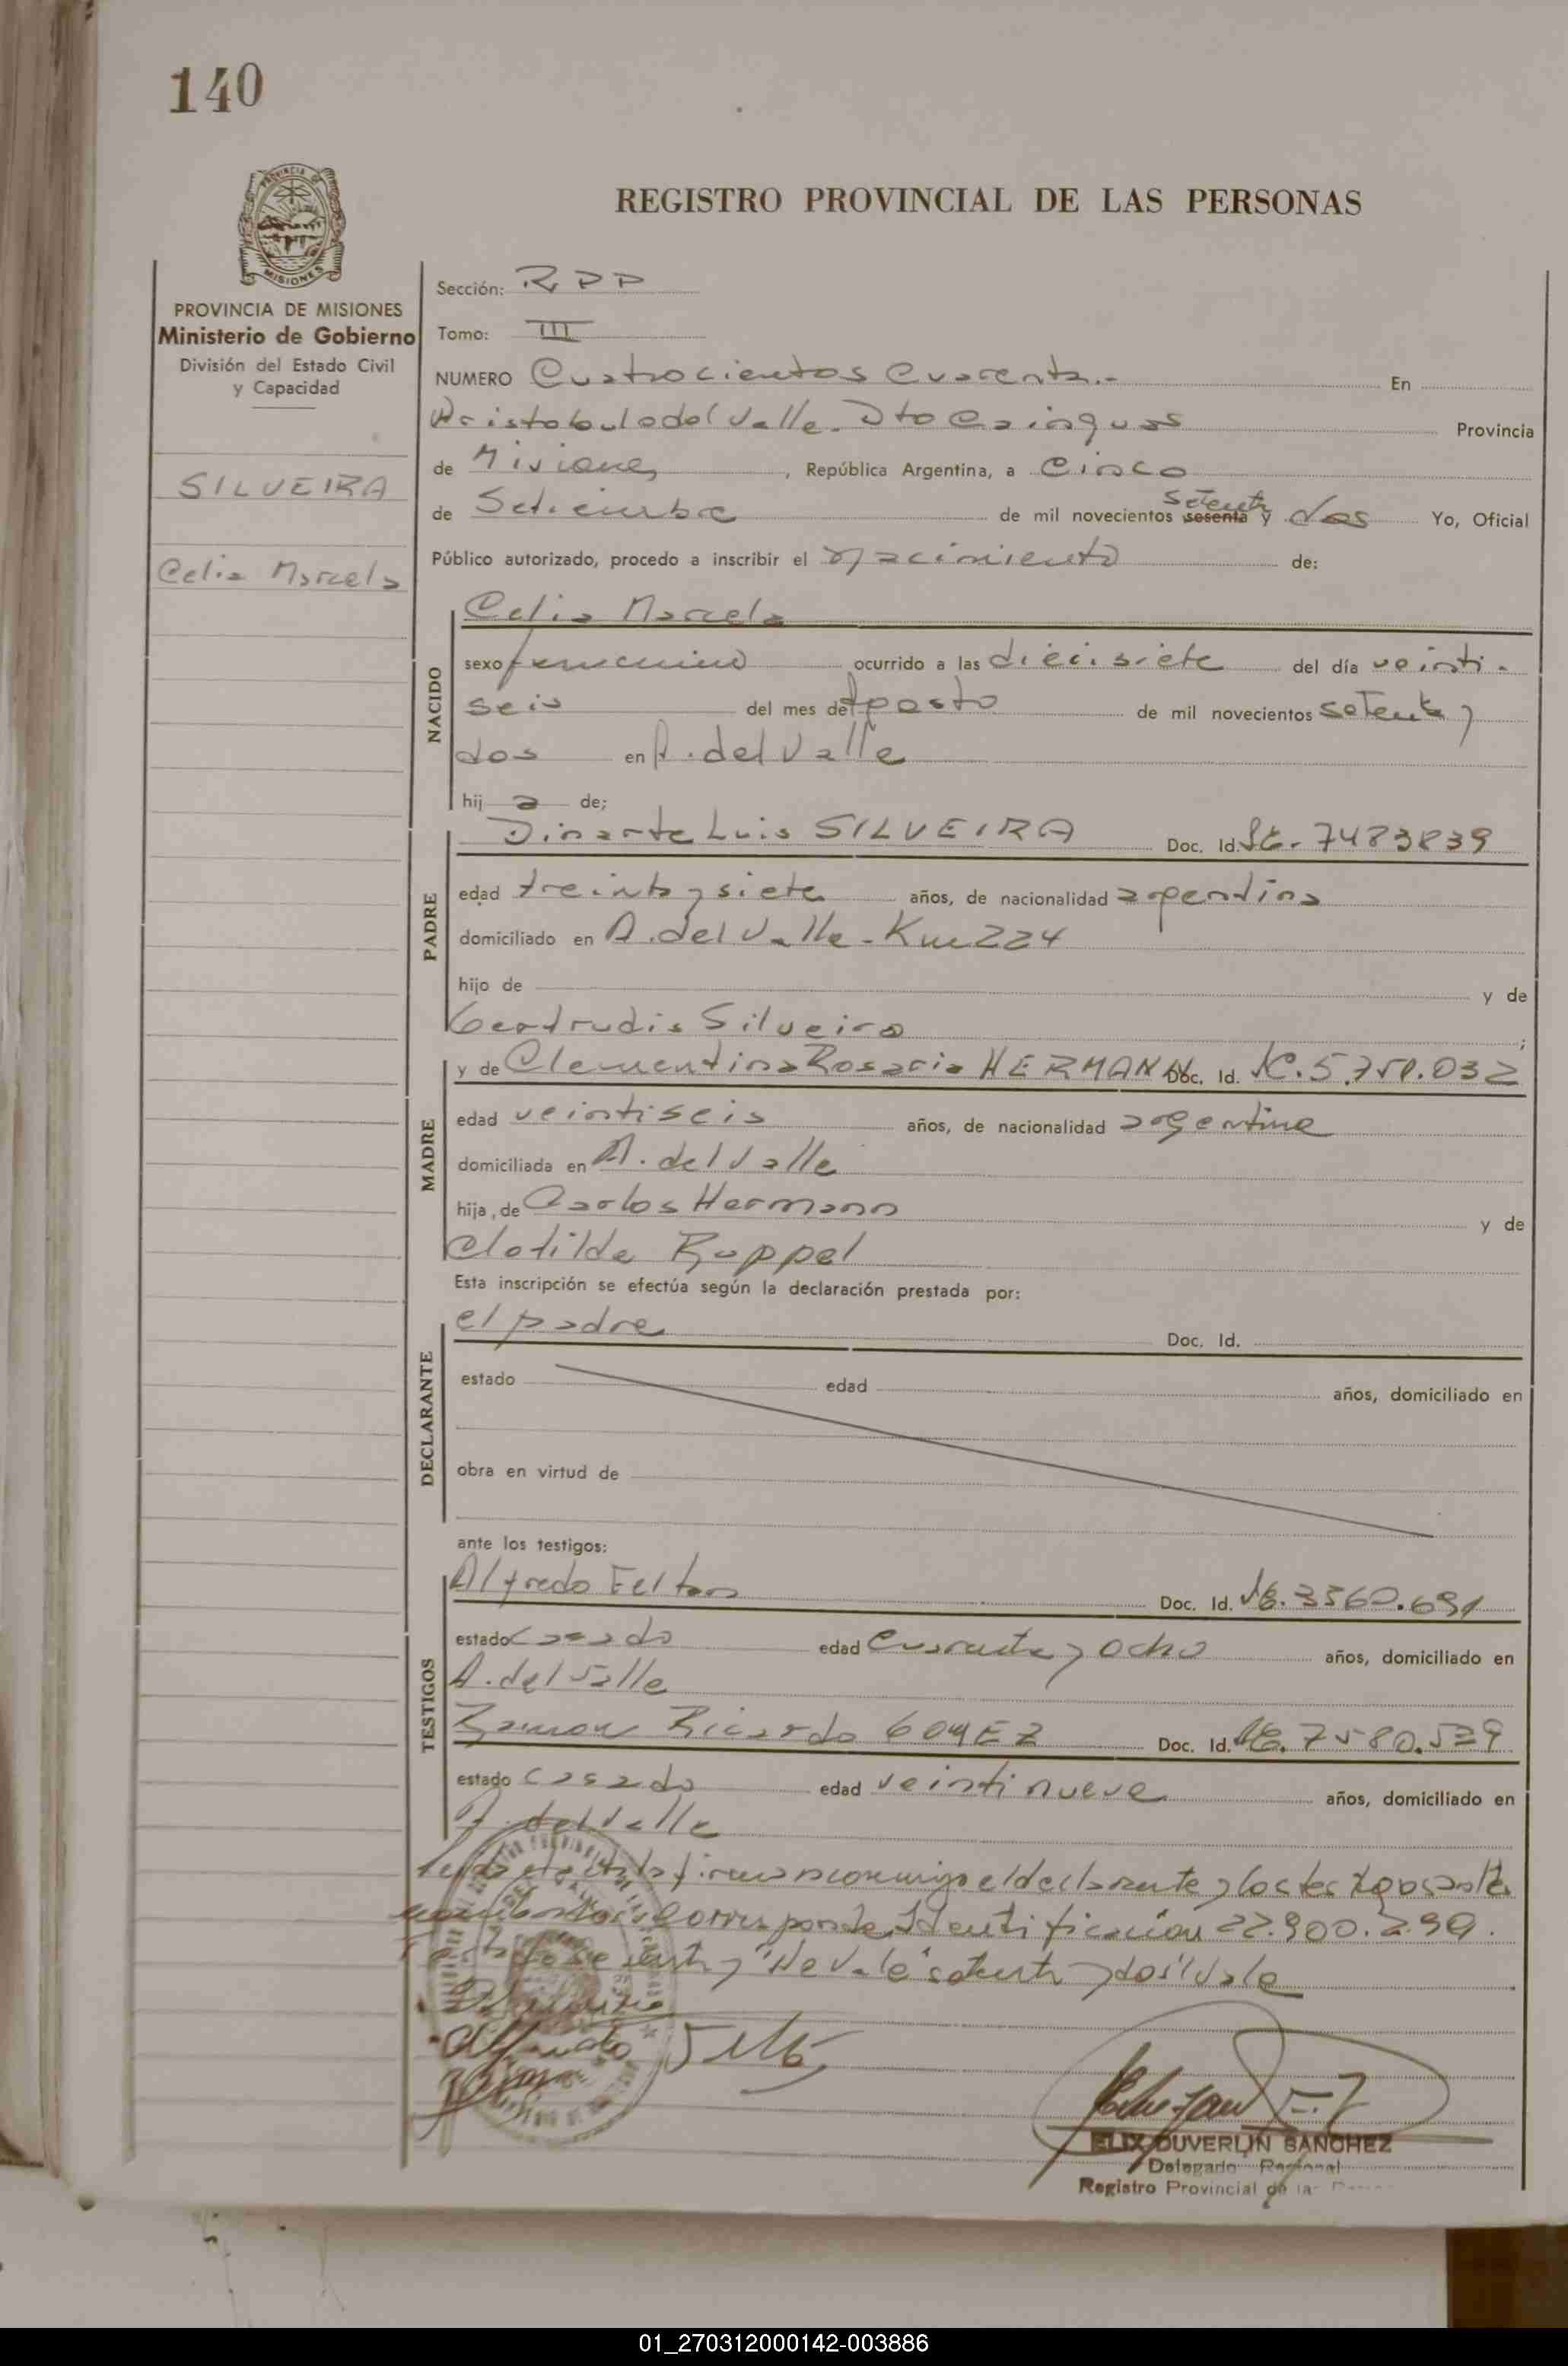 140
PROVINCIA DE
MISIONES
REGISTRO PROVINCIAL DE LAS PERSONAS
PROVINCIA DE MISIONES
Ministerio de Gobierno
División del Estado Civil
y Capacidad
SILVEIRA
Celia Marcela
Sección: RPP
Tomo: III
NUMERO Cuatrocientos Cuarenta.- En
Aristobulo del Valle. Dto Cainguas Provincia
de Misiones, República Argentina, a Cinco
de Setiembre de mil novecientos sesenta setenta y dos Yo, Oficial
Público autorizado, procedo a inscribir el nacimiento de:
NACIDO
Celia Marcela
sexo femenino ocurrido a las diecisiete del día veinti-
seis del mes de Agosto de mil novecientos setenta y
dos en A. del Valle
hij a de;
PADRE
Dinarte Luis SILVEIRA Doc. Id. 7483839
edad treinta y siete años, de nacionalidad argentina
domiciliado en A. del Valle - Km 224
hijo de y de
Gertrudis Silveira ;
MADRE
y de Clementina Rosaria HERMANN Doc. Id. 5.751.032
edad veintiseis años, de nacionalidad argentina
domiciliada en A. del Valle
hija de Carlos Hermann y de
Clotilde Ruppel
Esta inscripción se efectúa según la declaración prestada por:
DECLARANTE
el padre Doc. Id.
estado edad años, domiciliado en
obra en virtud de
ante los testigos:
TESTIGOS
Alfredo Felton Doc. Id. 3560.691
estado casado edad cuarenta y ocho años, domiciliado en
A. del Valle
Ramon Ricardo GOMEZ Doc. Id. 7580.529
estado casado edad veintinueve años, domiciliado en
A. del Valle
firman conmigo el declarante y los testigos
corresponde Identificación 22.900.299.
"No vale" setenta y dos "Vale
ELIX DUVERLIN SANCHEZ
Delegado Regional
Registro Provincial de las
01_270312000142-003886